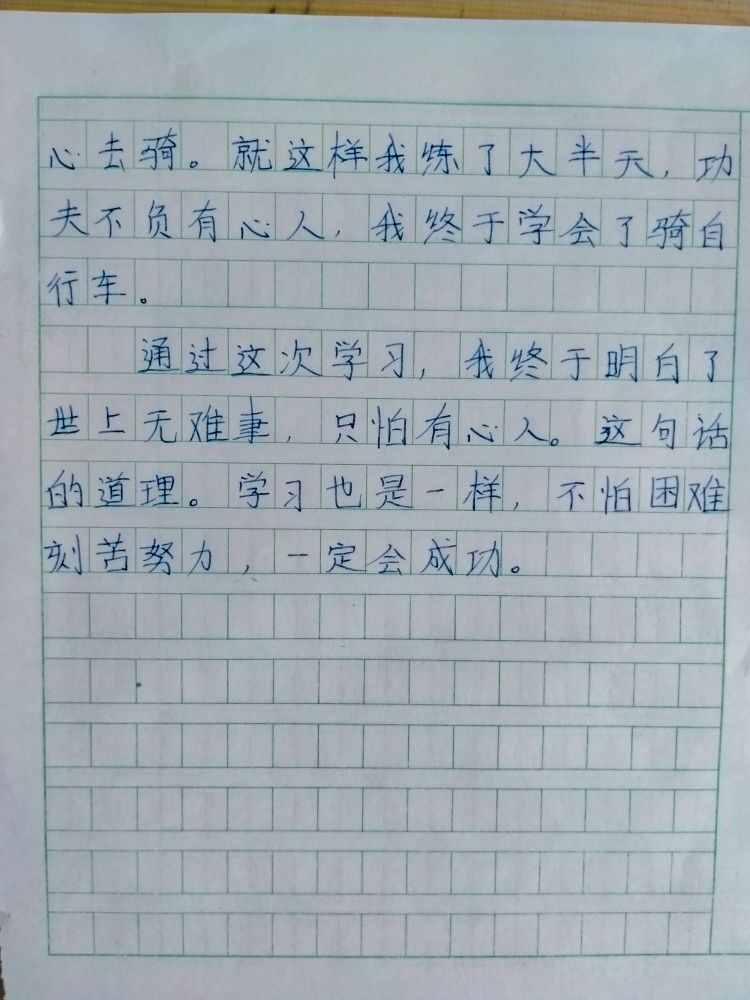 心去骑。就这样我练了大半天，功
夫不负有心人，我终于学会了骑自
行车。
通过这次学习，我终于明白了
世上无难事，只怕有心人。这句话
的道理。学习也是一样，不怕困难
刻苦努力，一定会成功。